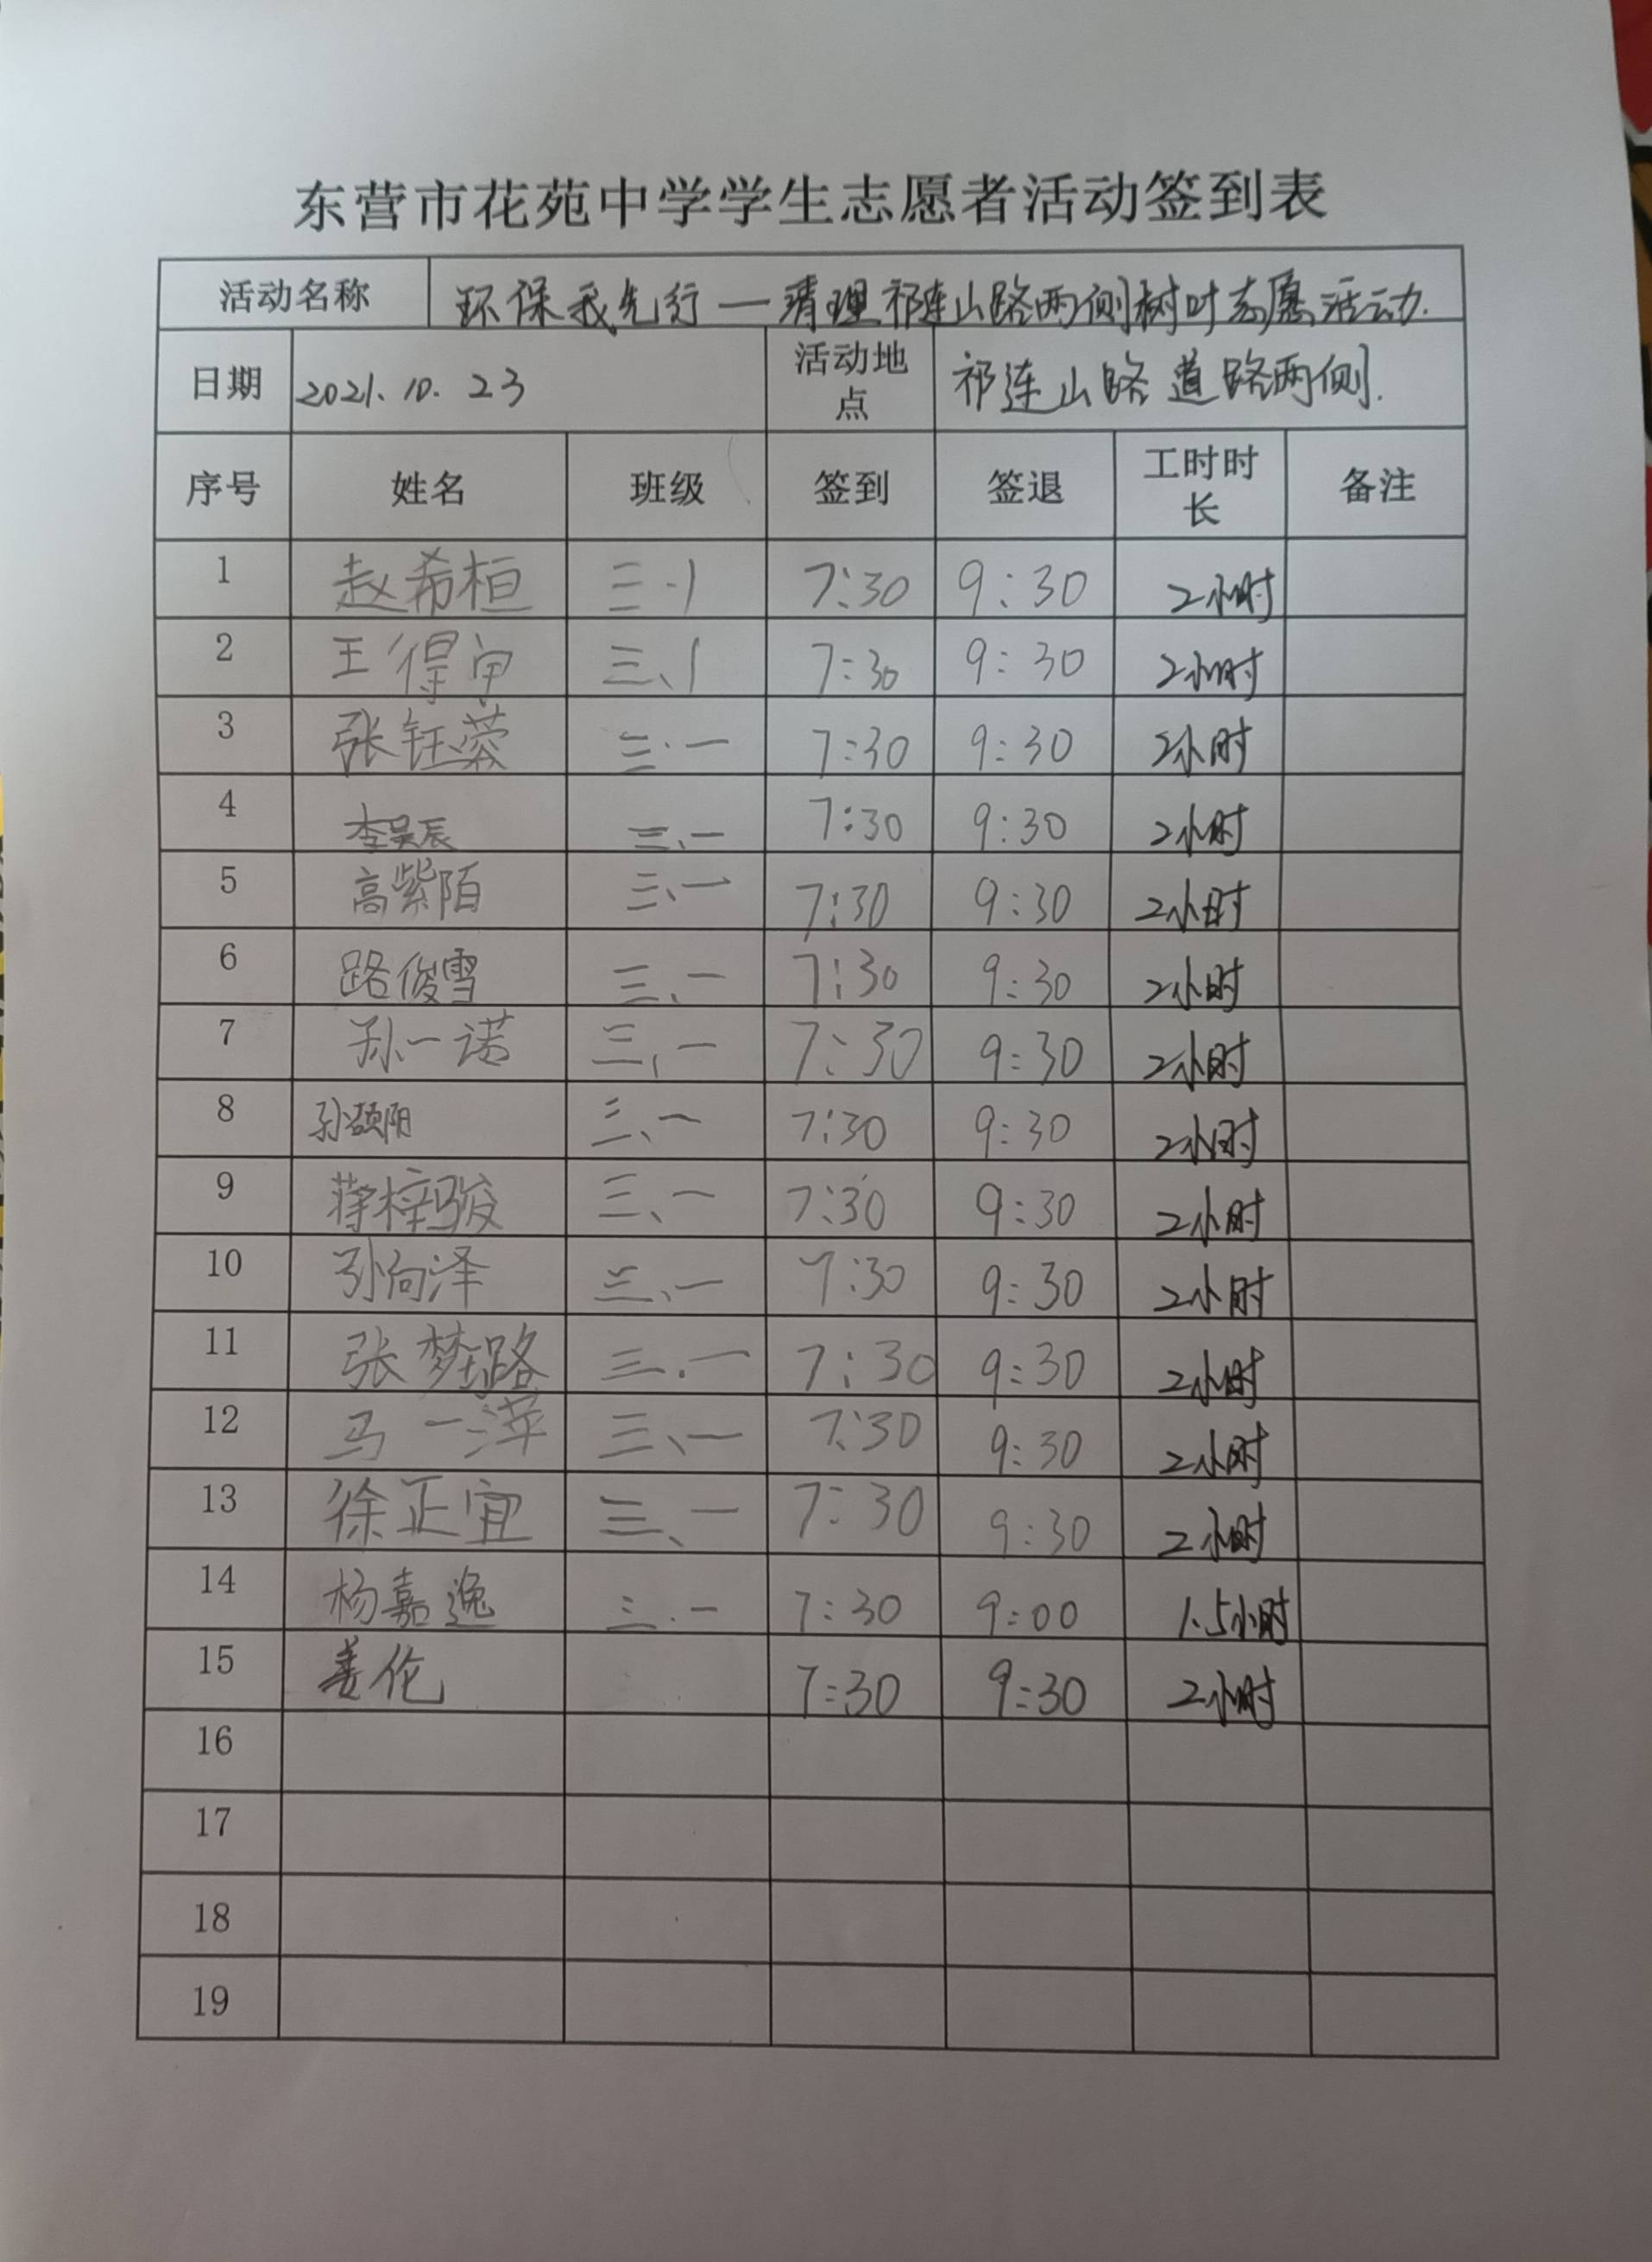 东营市花苑中学学生志愿者活动签到表
活动名称 环保我先行一清理祁连山路两侧树叶志愿活动.
日期 2021.10.23 活动地点 祁连山路道路两侧.
序号 姓名 班级 签到 签退 工时时长 备注
1 赵希桓 三.1 7:30 9:30 2小时
2 王得 三、1 7:30 9:30 2小时
3 张钰蓉 三.一 7:30 9:30 2小时
4 李昊辰 三、一 7:30 9:30 2小时
5 高紫陌 三、一 7:30 9:30 2小时
6 路俊雪 三、一 7:30 9:30 2小时
7 孙一诺 三、一 7:30 9:30 2小时
8 孙硕阳 三、一 7:30 9:30 2小时
9 蒋梓骏 三、一 7:30 9:30 2小时
10 孙向泽 三、一 7:30 9:30 2小时
11 张梦路 三.一 7:30 9:30 2小时
12 马一萍 三、一 7:30 9:30 2小时
13 徐正宜 三、一 7:30 9:30 2小时
14 杨嘉逸 三.一 7:30 9:00 1.5小时
15 姜伦 7:30 9:30 2小时
16
17
18
19